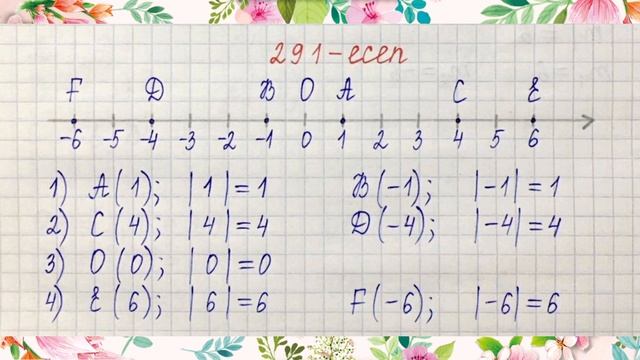 291-есеп
F D B O A C E
-6 -5 -4 -3 -2 -1 0 1 2 3 4 5 6
1) A(1); |1|=1 B(-1); |-1|=1
2) C(4); |4|=4 D(-4); |-4|=4
3) O(0); |0|=0
4) E(6); |6|=6 F(-6); |-6|=6